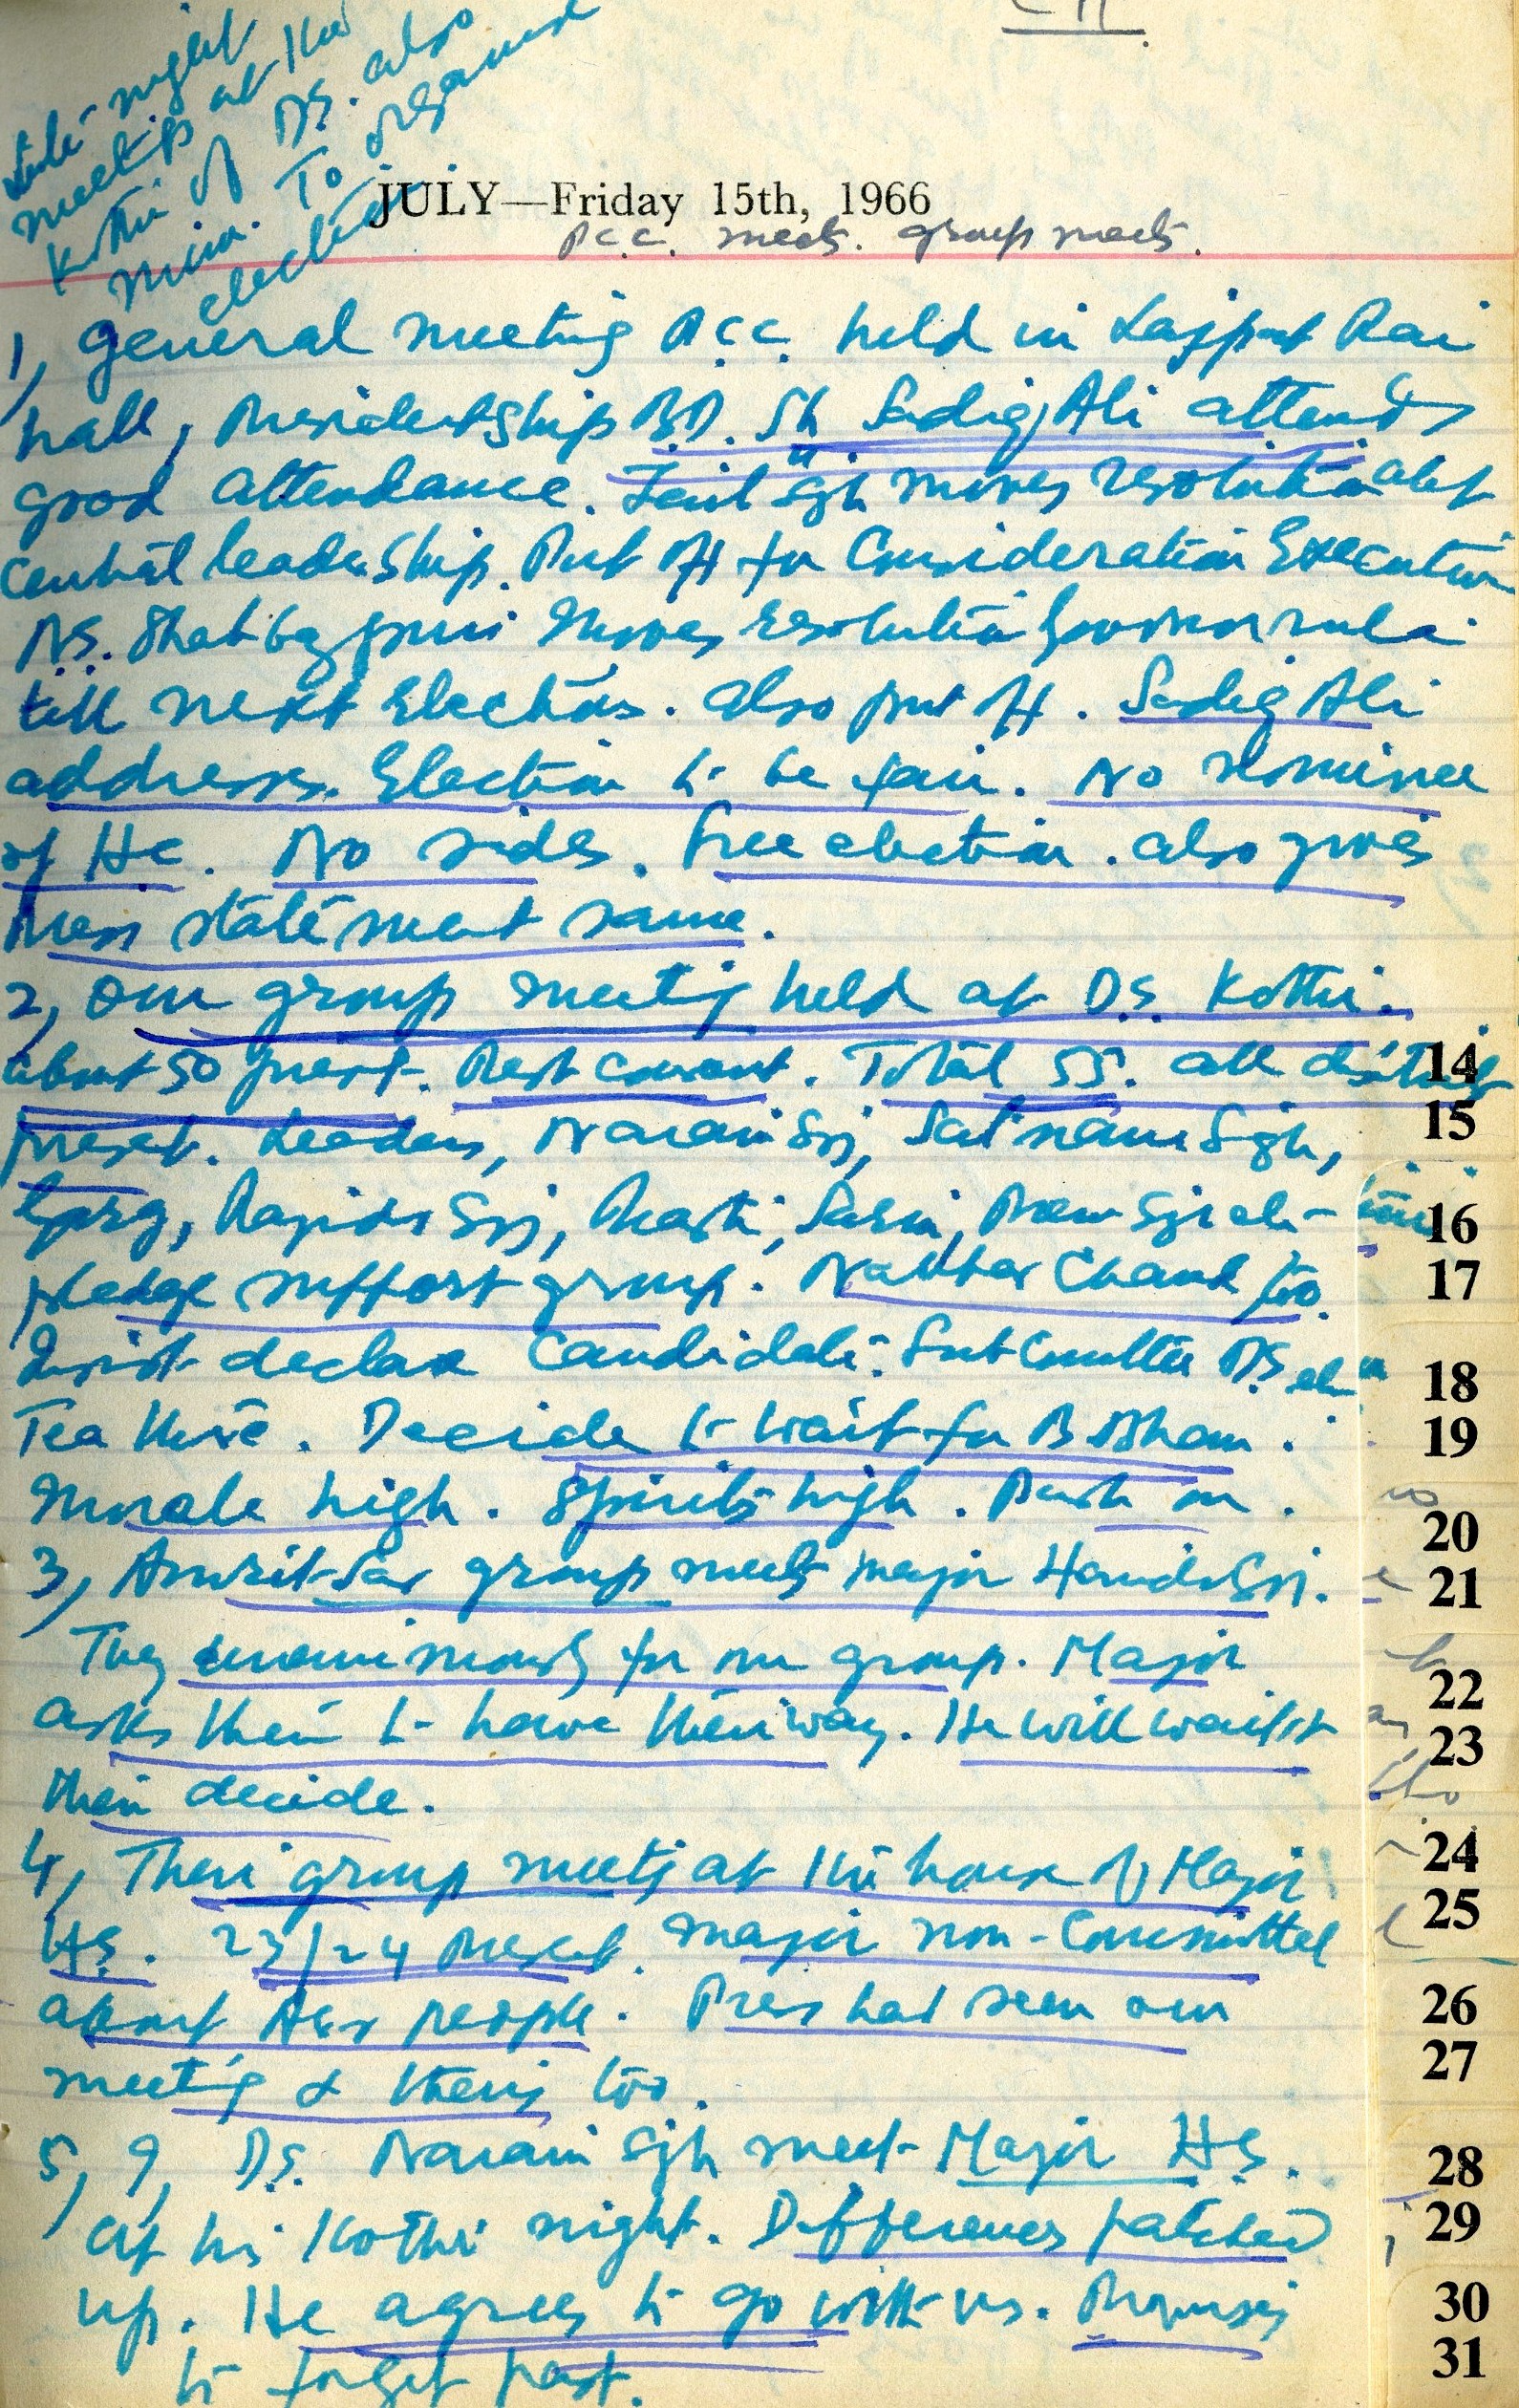 Late night
meetings at the
Kothi of DS. also
mine. To organise
election
JULY—Friday 15th, 1966
P.C.C. meets. group meets.
1, General meeting P.C.C. held in Lajpat Rai
hall, Presidentship B.D. Sh Sadiq Ali attends
good attendance. Sgh moves resolution abt
central leadership. Put off for Consideration Executive
N.S. moves resolution Governor rule
till next Elections. also put off. Sadiq Ali
addresses. Election to be fair. No nominee
of HC. No sides. Free election. also gives
press statement same.
2, our group meeting held at D.S. Kothi.
about 50 present. Rest consent. Total 55. all districts
present. Leaders, Narain Sgj, Satnam Sgh,
Garg, Rajinder Sgj, Prem Sgj etc
pledge support group. Chand too.
Insist declare Candidate. SubCommittee DS
Tea there. Decide to wait for
Morale high. Spirits high. Push on.
3, Amritsar group meets Major Harinder Sgj.
They unanimously for our group. Major
asks them to have their way. He will wait &
then decide.
4, Their group meets at the house of Major
HS. 23/24 present. Major non-Committal
about Asr people. Press had seen our
meeting & theirs too.
5, I, D.S. Narain Sgh meet Major HS.
at his Kothi night. Differences patched
up. He agrees to go with us. Promises
to forget past.
14
15
16
17
18
19
20
21
22
23
24
25
26
27
28
29
30
31